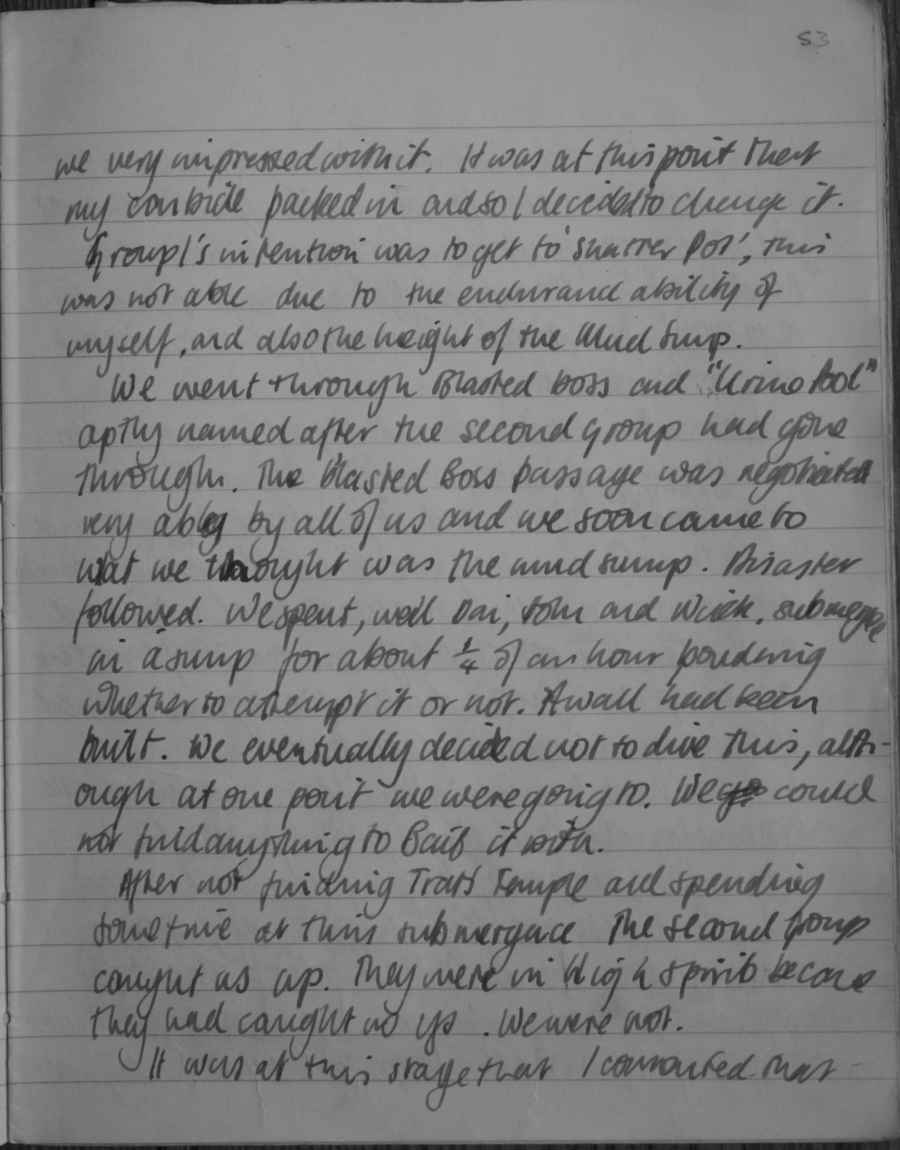 53
we very impressed with it. It was at this point that
my carbide packed in and so I decided to change it.
Group 1's intention was to get to 'Shatter Pot', this
was not able due to the endurance ability of
myself, and also the height of the Mud Sump.
We went through Blasted Boss and "Urine Pool"
aptly named after the second group had gone
through. The Blasted Boss passage was negotiated
very ably by all of us and we soon came to
what we thought was the mud sump. Disaster
followed. We spent, well Dai, Tom and submerged
in a sump for about 1/4 of an hour pondering
whether to attempt it or not. A wall had been
built. We eventually decided not to dive this, alth-
ough at one point we were going to. We could
not find anything to Bail it with.
After not finding Temple and spending
some time at this submergence The second group
caught us up. They were in High spirits because
they had caught us up. We were not.
It was at this stage that I commented that